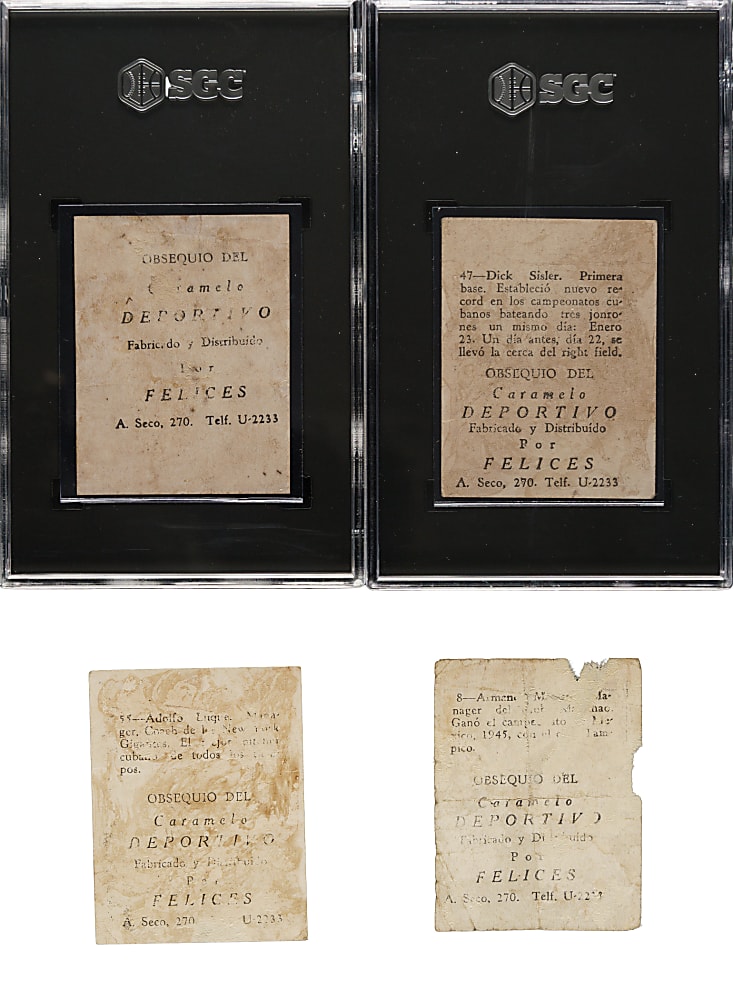 SGC
OBSEQUIO DEL
DEPORTIVO
y Distribuído
FELICES
A. Seco, 270. Telf. U-2233
SGC
47—Dick Sisler. Primera
base. Estableció nuevo re-
cord en los campeonatos cu-
banos bateando tres jonro-
nes un mismo día: Enero
23. Un día antes, día 22, se
llevó la cerca del right field.
OBSEQUIO DEL
Caramelo
DEPORTIVO
Fabricado y Distribuído
Por
FELICES
A. Seco, 270. Telf. U-2233
55—Adolfo Luque.
ger. Coach de New York
Gigantes. El
de todos
pos.
OBSEQUIO DEL
Caramelo
DEPORTIVO
Fabricado y
FELICES
A. Seco, 270 U-2233
8—
nager del
Ganó el
1945,
pico.
OBSEQUIO DEL
Caramelo
DEPORTIVO
y
Por
FELICES
270. Telf.